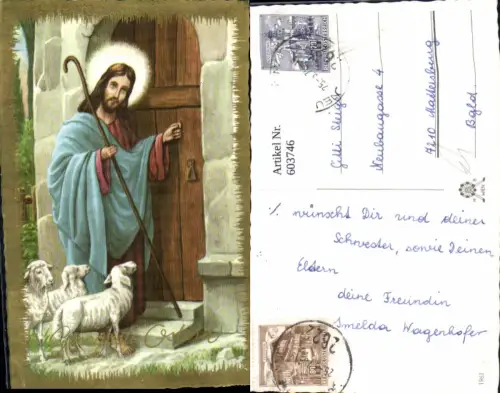 Artikel Nr.
603746
Neubaugasse 4
7210 Mattersburg
Bgld
wünscht Dir und deiner
Schwester, sowie Deinen
Eltern
deine Freundin
Imelda Wagenhofer